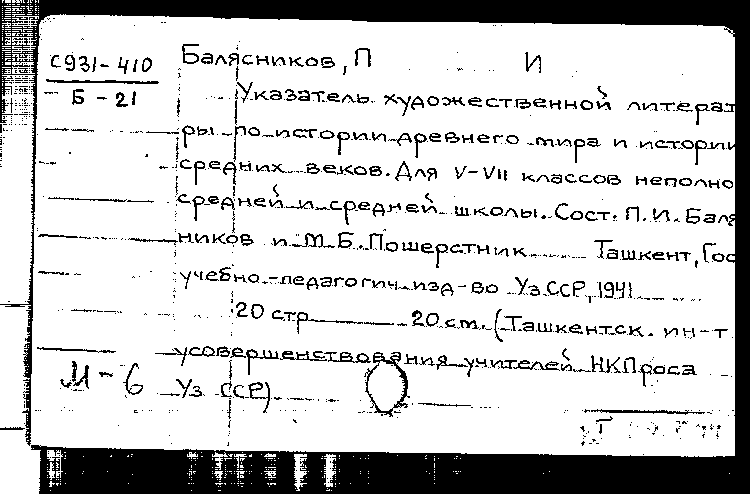 С931-410
Б - 21
Балясников, П И
Указатель художественной литерат
ры по истории древнего мира и истории
средних веков. Для V-VII классов неполно
средней и средней школы. Сост. П. И. Баля
ников и М. Б. Пошерстник Ташкент, Гос
учебно-педагогич. изд-во Уз ССР, 1941
20 стр 20 см. (Ташкентск. ин-т
усовершенствования учителей НКПроса
Уз ССР)
М-6